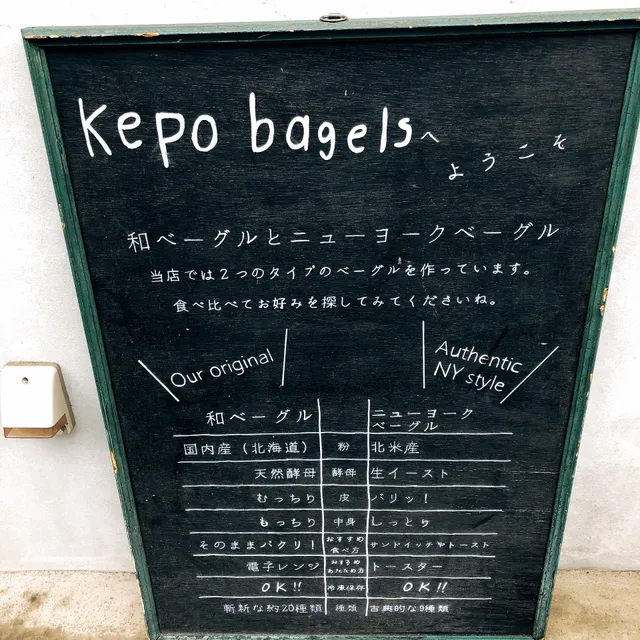 Kepo bagelsへ
ようこそ
和ベーグルとニューヨークベーグル
当店では2つのタイプのベーグルを作っています。
食べ比べてお好みを探してみてくださいね。
Our original
Authentic
NY style
和ベーグル ニューヨーク
ベーグル
国内産(北海道) 粉 北米産
天然酵母 酵母 生イースト
むっちり 皮 パリッ!
もっちり 中身 しっとり
そのままパクリ! おすすめ
食べ方 サンドイッチやトースト
電子レンジ おすすめ
あたため方 トースター
OK!! 冷凍保存 OK!!
斬新な約20種類 種類 古典的な9種類